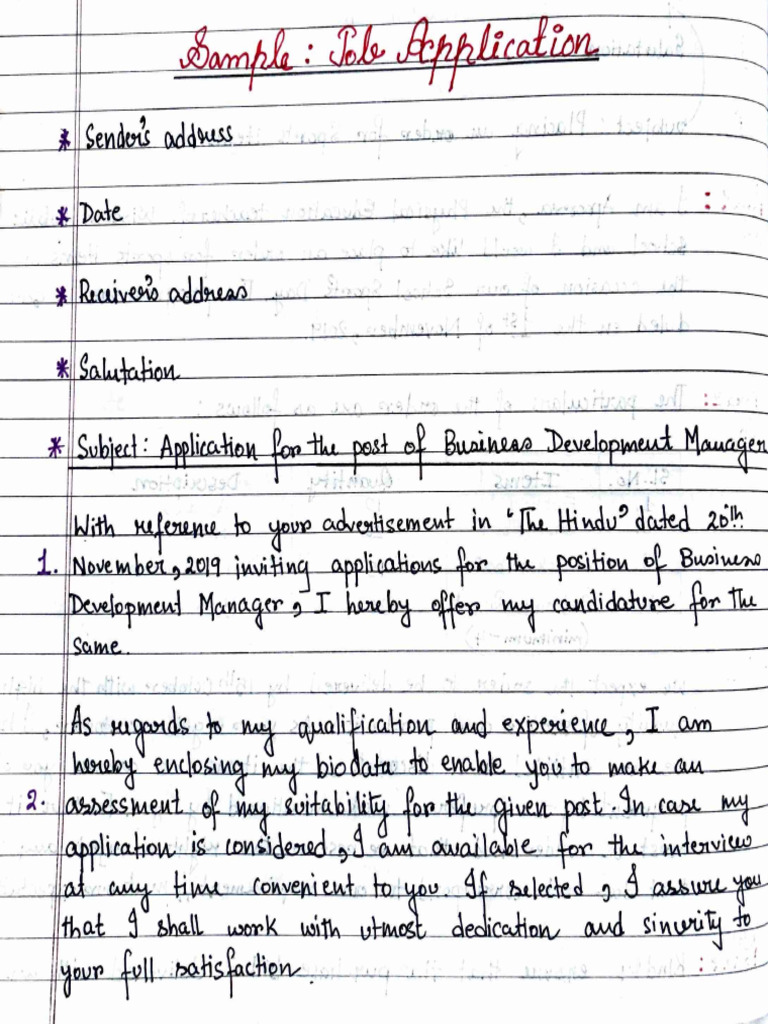 Sample: Job Application
* Sender's address
* Date
* Receiver's address
* Salutation
* Subject: Application for the post of Business Development Manager
With reference to your advertisement in "The Hindu" dated 20th
1. November, 2019 inviting applications for the position of Business
Development Manager, I hereby offer my candidature for the
same.
As regards to my qualification and experience, I am
hereby enclosing my biodata to enable you to make an
2. assessment of my suitability for the given post. In case my
application is considered, I am available for the interview
at any time convenient to you. If selected, I assure you
that I shall work with utmost dedication and sincerity to
your full satisfaction.